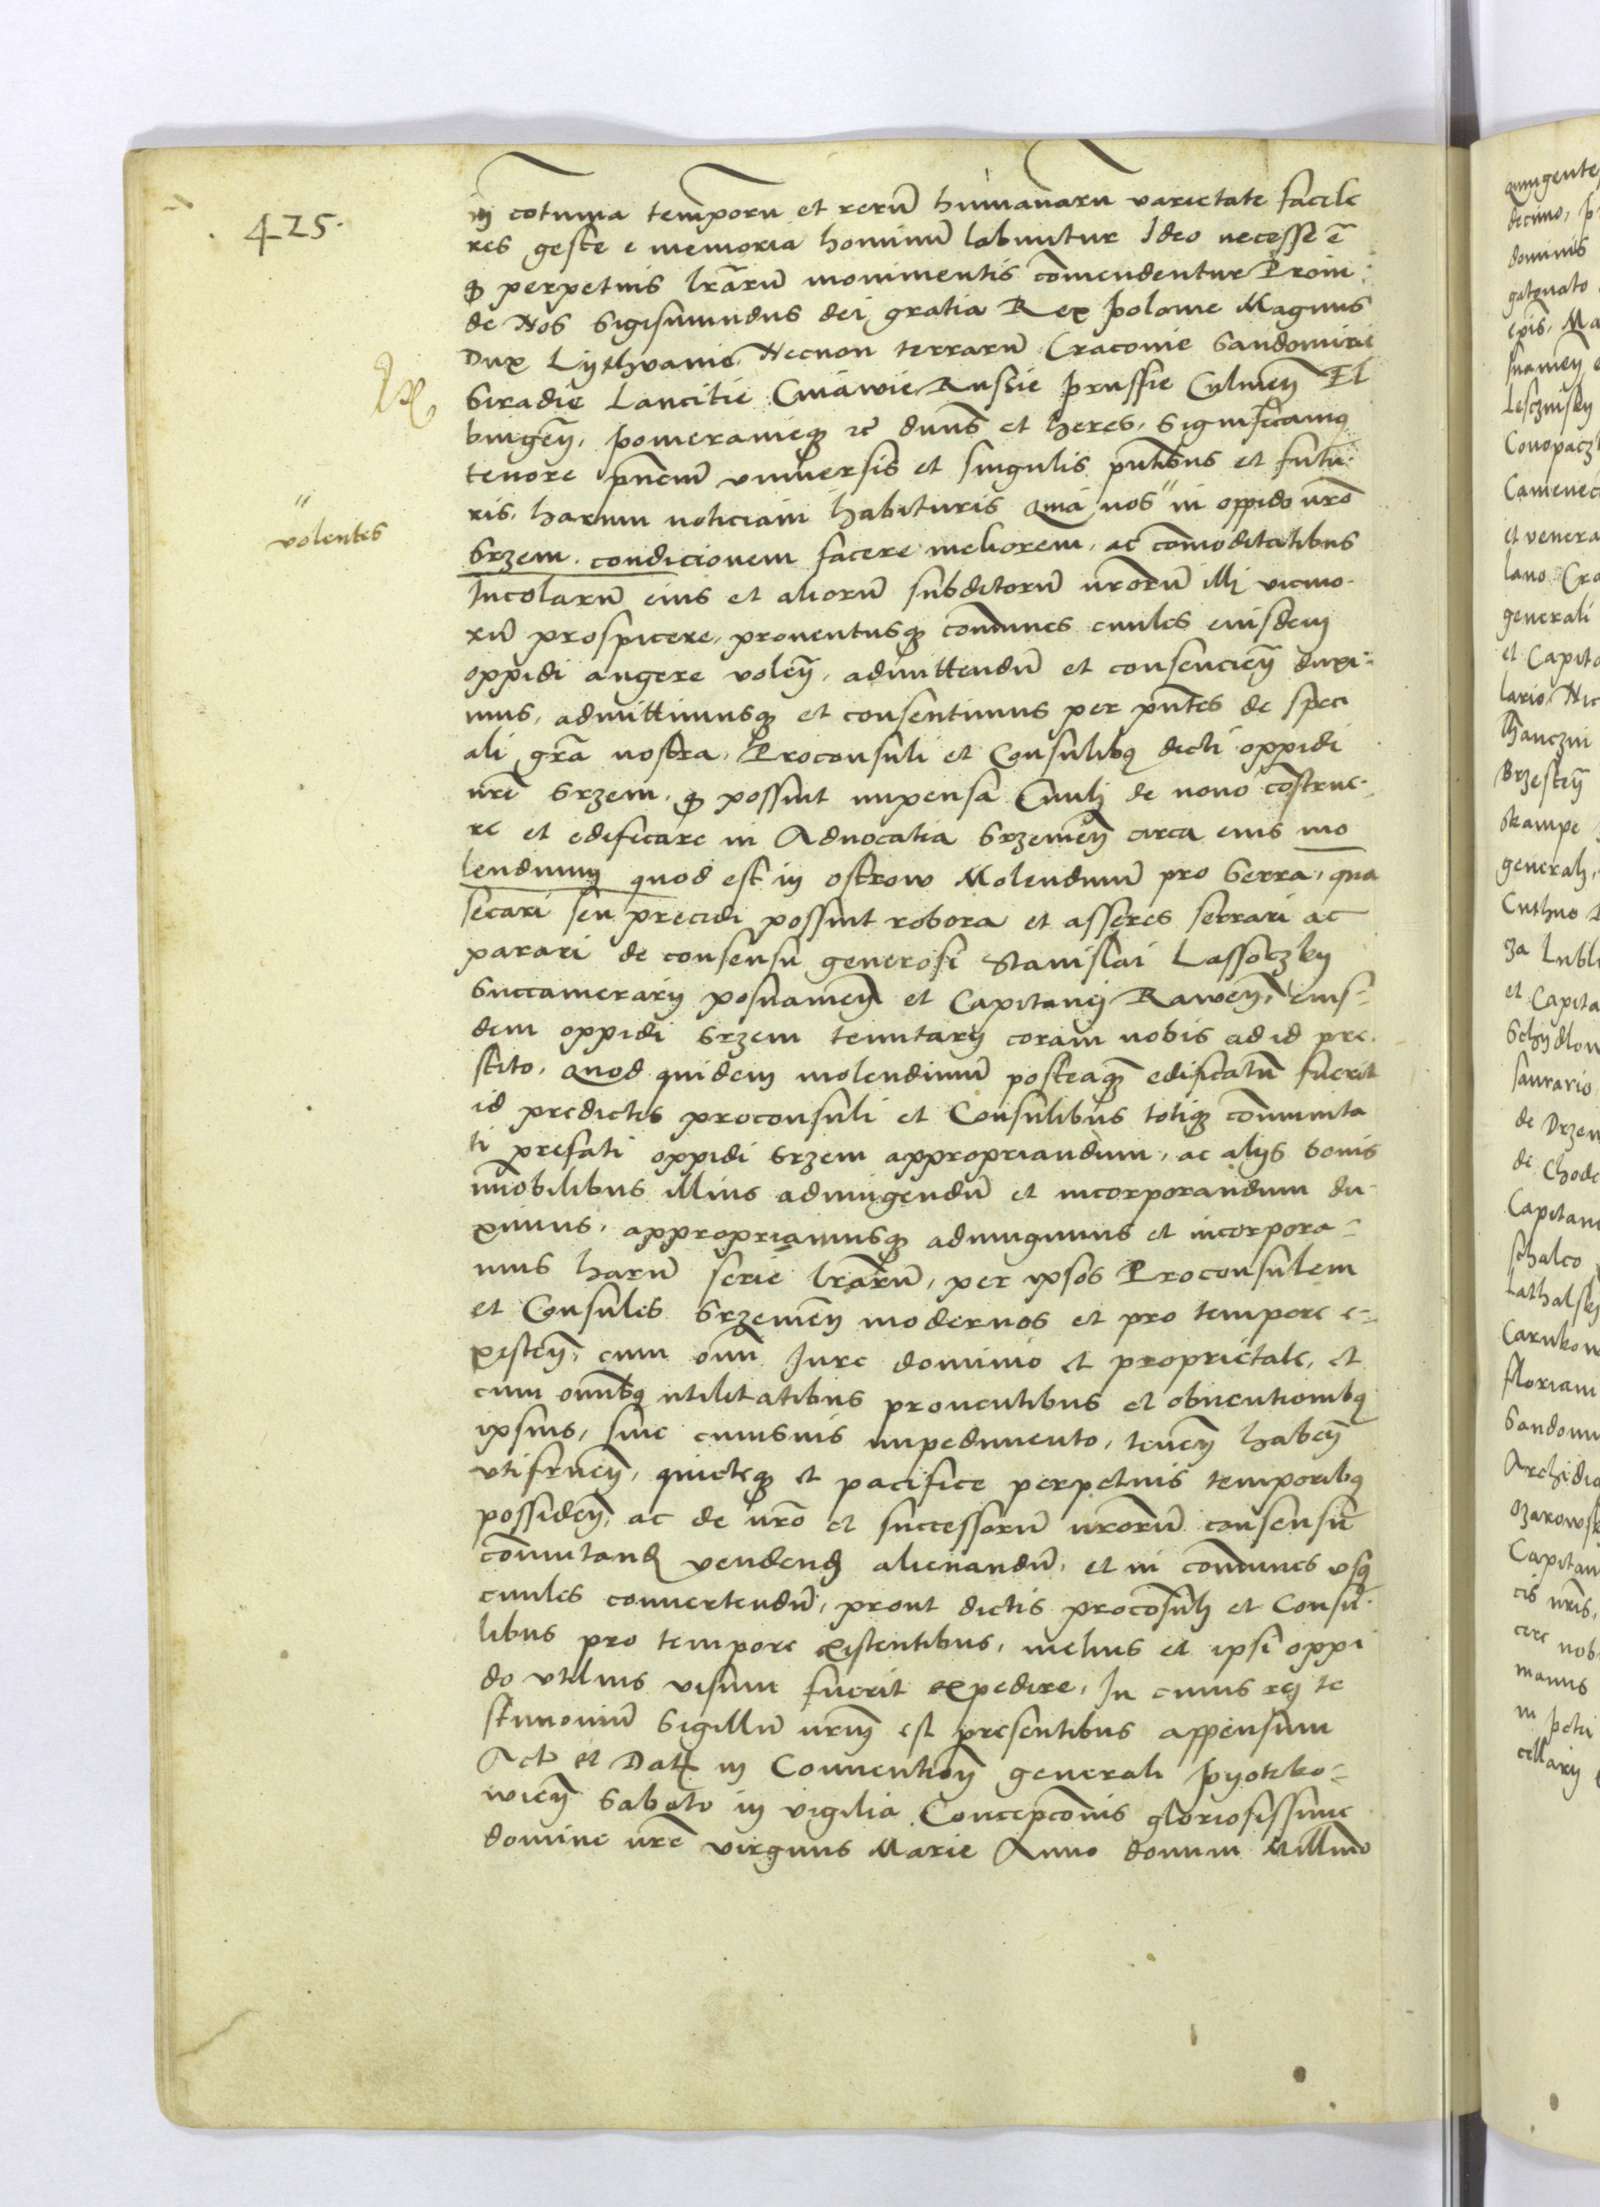 425.
volentes
in cōtinua temporū et rerū humanarū varietate facile
res geste e memoria hominū labuntur Ideo necesse ē
ꝙ perpetuis lrārū monimentis cōmendentur Proin
de Nos Sigismundus dei gratia Rex Polonie Magnus
Dux Lythvanie Necnon terrarū Cracovie Sandomirie
Siradie Lancitie Cuiavie Russie Prussie Culmeñ El
bingeñ, Pomeranieqꝫ ꝛc̄ dnūs et heres, Significamꝰ
tenore pn̄ciū universis et singulis pn̄tibus et futu
ris, harum noticiam habituris Quia nos " in oppido nrō
Srzem condicionem facere meliorem, ac cōmoditatibus
Incolarū eius et aliorū subditorū nrōrū illi vicino
rū prospicere, proventusqꝫ cōmunes civiles eiusdem
oppidi augere voleñ, admittendū et consencieñ duxi
mus, admittimusqꝫ et consentimus per pn̄tes de speci
ali grā nostra, Proconsuli et Consulibꝫ dicti oppidi
nrī Srzem, ꝙ possint impensa Civili de novo cōstrue
re et edificare in Advocatia Srzemeñ circa eius mo
lendinum quod est in ostrow Molendinū pro Serra, qua
secari seu precidi possint robora et asseres serrari ac
parari de consensu generosi Stanislai Lassoczky
Succamerarij posnanieñ et Capitanei Raweñ, eius
dem oppidi Srzem tenutarij coram nobis ad id pre
stito, Quod quidem molendinū posteaqꝫ edificatū fuerit
id predictis proconsuli et Consulibus totiqꝫ cōmunita
ti prefati oppidi Srzem appropriandum, ac alijs bonis
īmobilibus illius adiungendū et incorporandum du
ximus, appropriamusqꝫ adiungimus et incorpora
mus harū serie lrārū, per ipsos Proconsulem
et Consules Srzemeñ modernos et pro tempore e
xisteñ, cum omī Iure dominio et proprietate, et
cum omībꝫ utilitatibus proventibus et obventionibꝫ
ipsius, sine cuiusvis impedimento, teneñ habeñ
utifrueñ, quieteqꝫ et pacifice perpetuis temporibꝫ
possideñ, ac de nrō et successorū nrōrū consensu
cōmutand vendend alienandū, et in cōmunes usꝫ
civiles convertendū, prout dictis procōsuli et Consu
libus pro tempore existentibus, melius et ipsi oppi
do utilius visum fuerit expedire, In cuius rei te
stimoniū Sigillū nrūm est presentibus appensum
Act et Dat in Conventioñ generali Pyotrko
wieñ Sabato in vigilia Concepcōnis gloriosissime
domine nrē virginis Marie Anno domini Millmō
dominis
Leszinsky
et venera
generali
et Capita
lario
Brzesteñ
generali,
et Capita
de Drzew
Capitan
schalco
floriani
Archidia
Capitan
cis nrīs,
cere nob
manus
in petri
cellarij